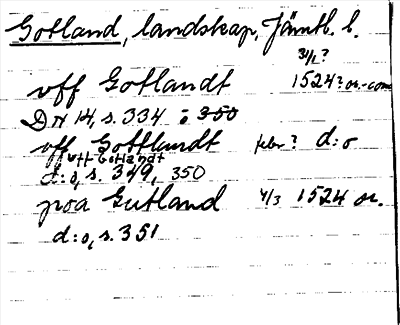 Gotland, landskap, Jämtl. l.
31/1?
vff Gotlandt 1524? or.-conc
DN 14, s. 334 o 350
vff Gottlandt febr? d:o
vtt Gotlandt
d:o, s. 349, 350
poa Gutland 4/3 1524 or.
d:o, s. 351